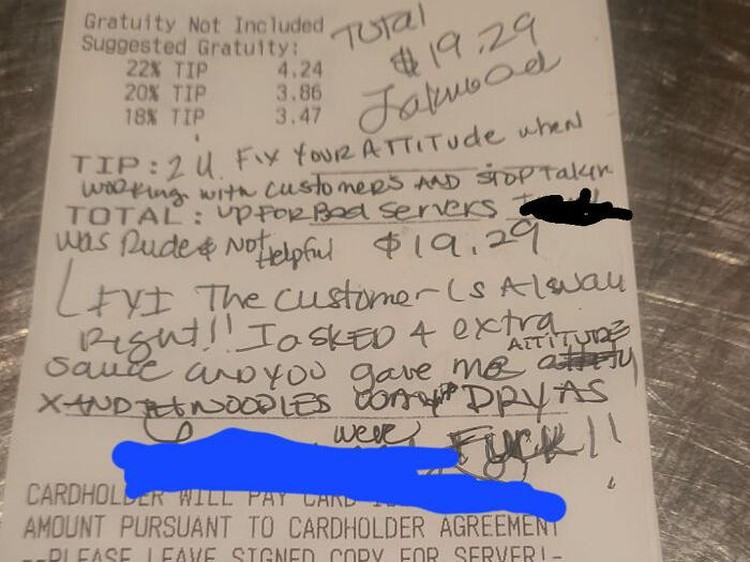 Gratuity Not Included
Suggested Gratuity:
22% TIP 4.24
20% TIP 3.86
18% TIP 3.47
TOTal
$19.29
TIP: 2 U. Fix YOUR ATTITude when
working with customers AND STOP Takin
TOTAL: UP FOR Bad Servers
was Rude & Not Helpful $19.29
FYI The customer is Alway
Right!! I asked 4 extra
sauce and you gave me ATTITUDE
X AND NOODLES were DRY AS
FUCK!!
CARDHOLDER WILL PAY CARD
AMOUNT PURSUANT TO CARDHOLDER AGREEMENT
--PLEASE LEAVE SIGNED COPY FOR SERVER!-